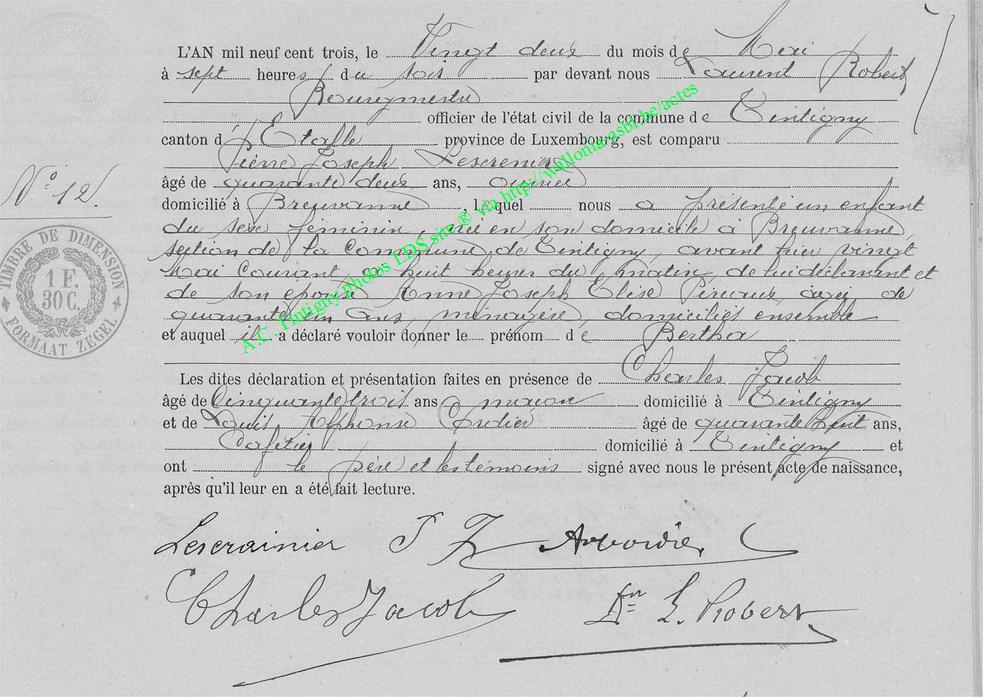 L'AN mil neuf cent trois, le Vingt deux du mois de Mai
à sept heures du soir par devant nous Laurent Robert
Bourgmestre
officier de l'état civil de la commune de Tintigny
canton d'Etalle province de Luxembourg, est comparu
Pierre Joseph Lescrenier
âgé de quarante deux ans, ouvrier
domicilié à Breuvanne, lequel nous a présenté un enfant
du sexe féminin, née en son domicile à Breuvanne,
section de la Commune de Tintigny, avant hier vingt
Mai Courant, à huit heures du matin, de lui déclarant et
de son épouse Anne Joseph Elise, âgée de
quarante un ans, ménagère, domiciliés ensemble
et auquel il a déclaré vouloir donner le prénom de Bertha
Les dites déclaration et présentation faites en présence de Charles Jacob
âgé de Cinquante trois ans maçon domicilié à Tintigny
et de Louis Alphonse âgé de quarante huit ans,
Cafetier domicilié à Tintigny et
ont le père et les témoins signé avec nous le présent acte de naissance,
après qu'il leur en a été fait lecture.
N° 12.
TIMBRE DE DIMENSION
1 F.
30 C.
FORMAAT ZEGEL
A.C. Tintigny photos LDS site® via http://wallonia.asbl.be/actes
Lescrainier P J
Charles Jacob L. Robert